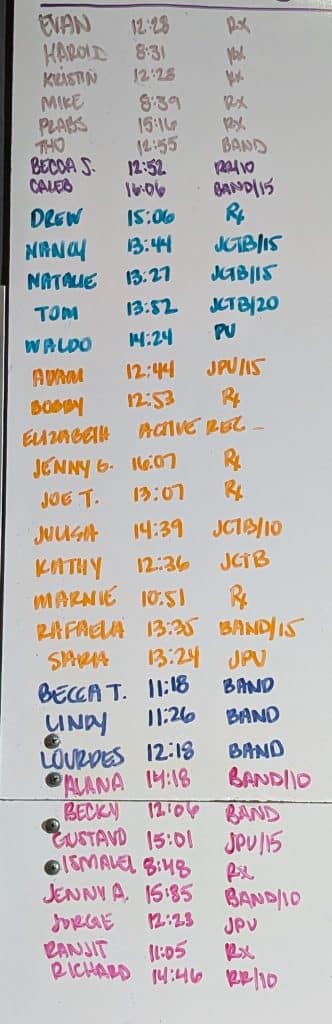 EVAN 12:28 Rx
HAROLD 8:31 Rx
KRISTIN 12:28 Rx
MIKE 8:39 Rx
PLABS 15:16 Rx
THO 12:55 BAND
BECCA S. 12:52 RR/10
CALEB 16:06 BAND/15
DREW 15:06 Rx
NANCY 13:44 JCTB/15
NATALIE 13:27 JCTB/15
TOM 13:52 JCTB/20
WALDO 14:24 PU
ADAM 12:44 JPU/15
BOBBY 12:53 Rx
ELIZABETH ACTIVE REC
JENNY G. 16:07 Rx
JOE T. 13:07 Rx
JULISA 14:39 JCTB/10
KATHY 12:36 JCTB
MARNIE 10:51 Rx
RAFAELA 13:35 BAND/15
SARIA 13:24 JPU
BECCA T. 11:18 BAND
LINDY 11:26 BAND
LOURDES 12:18 BAND
ALANA 14:18 BAND/10
BECKY 12:06 BAND
GUSTAVO 15:01 JPU/15
ISMAEL 8:48 Rx
JENNY A. 15:35 BAND/10
JORGE 12:23 JPU
RANJIT 11:05 Rx
RICHARD 14:46 RR/10